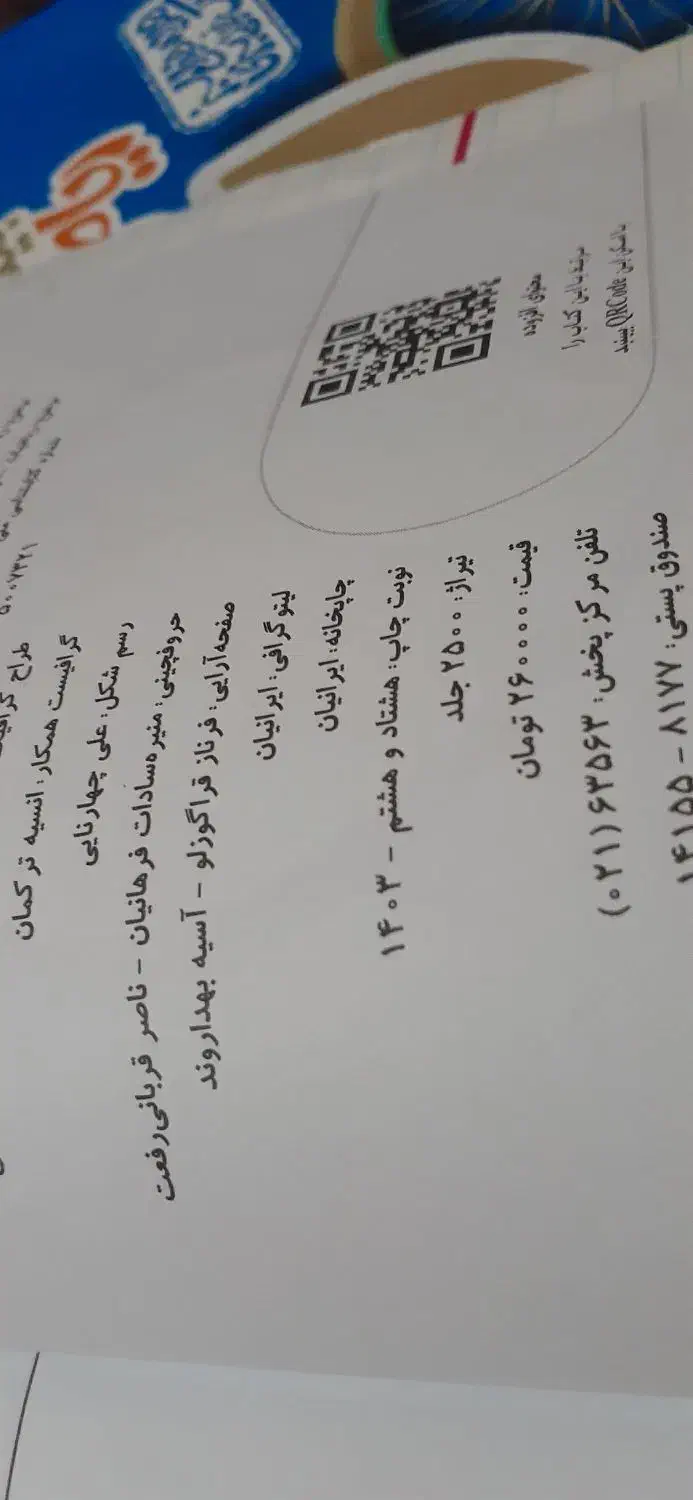 طراح
گرافیست همکار: انسیه ترکمان
رسم شکل: علی چهارنایی
حروفچینی: منیره‌سادات فرهانیان - ناصر قربانی‌رفعت
صفحه‌آرایی: فرناز قراگوزلو - آسیه بهداروند
لیتوگرافی: ایرانیان
چاپخانه: ایرانیان
نوبت چاپ: هشتاد و هشتم - ۱۴۰۳
تیراژ: ۲۵۰۰ جلد
قیمت: ۲۶۰۰۰۰ تومان
تلفن مرکز پخش: ۶۳۵۶۳(۰۲۱)
صندوق پستی: ۸۱۷۷ - ۱۴۱۵۵
محتوای افزوده
مرتبط با این کتاب را
با اسکن این QRCode ببینید